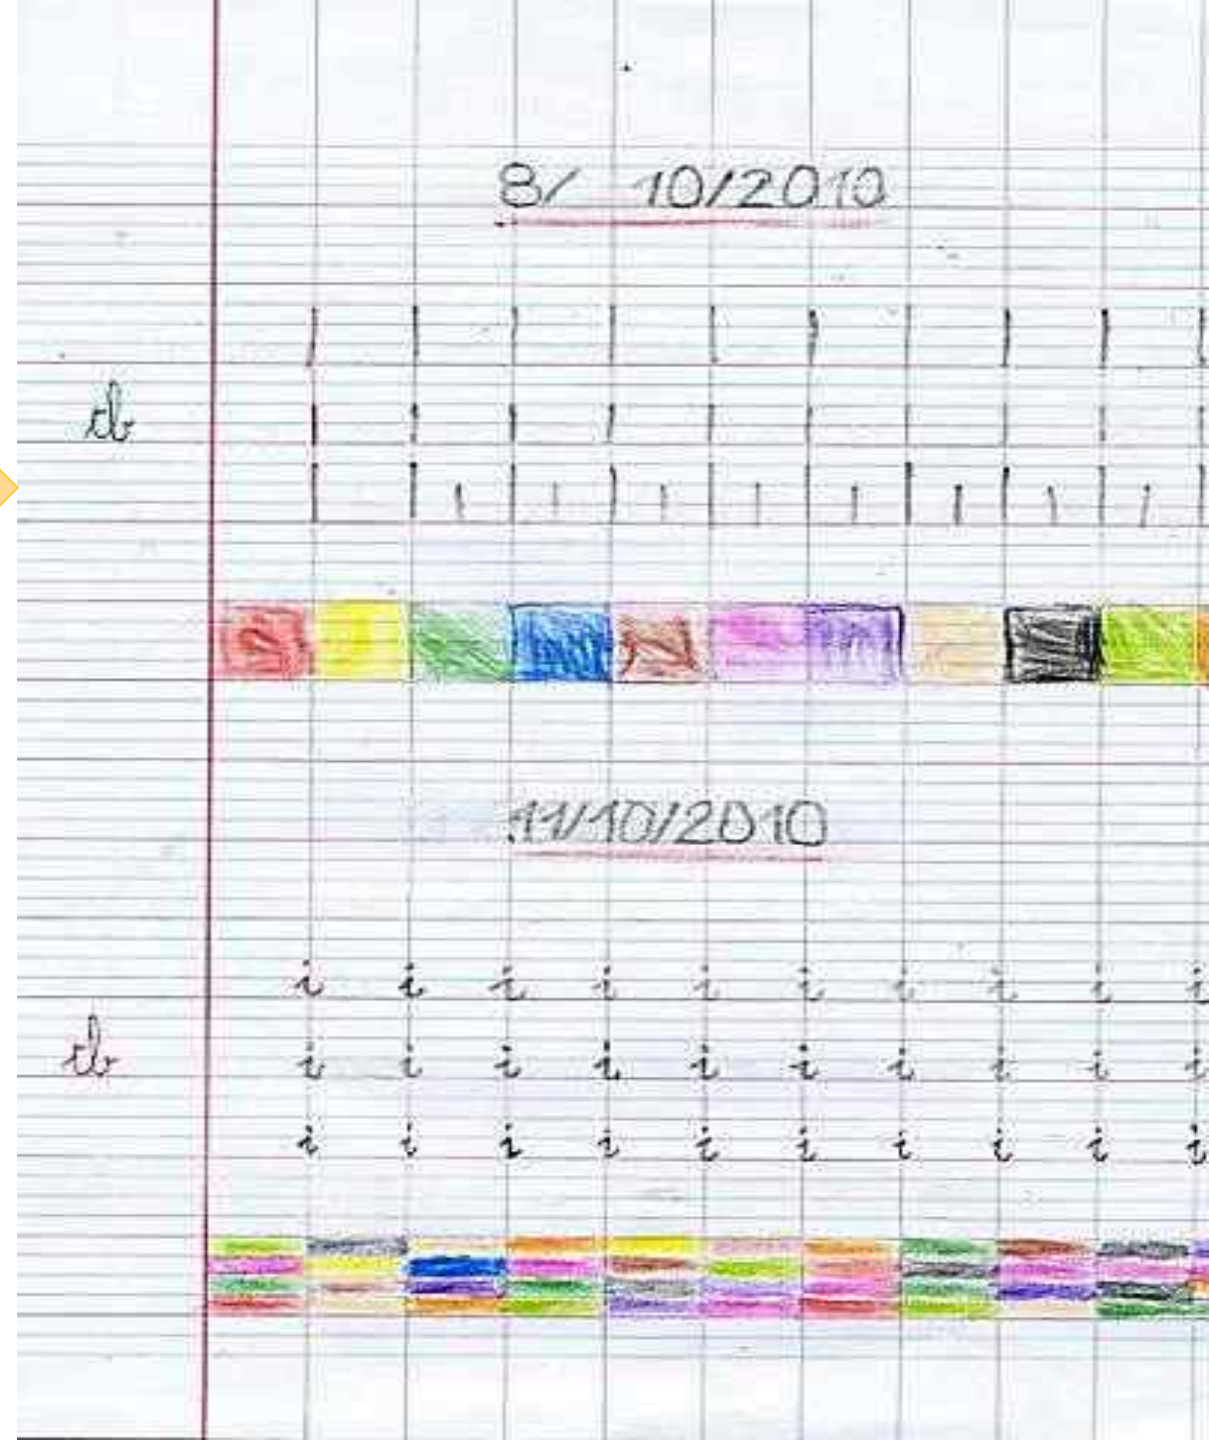 8/ 10/2010
tb
11/10/2010
i i i i i i i i i i
i i i i i i i i i i
tb
i i i i i i i i i i